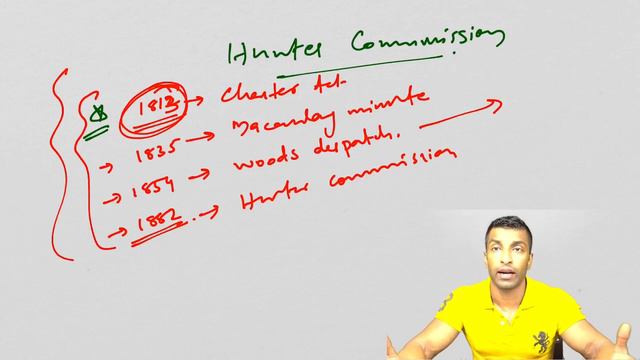 Hunter Commission
1813 → Charter Act
→ 1835 → Macaulay minute
→ 1854 → woods despatch. →
→ 1882 → Hunter commission
3